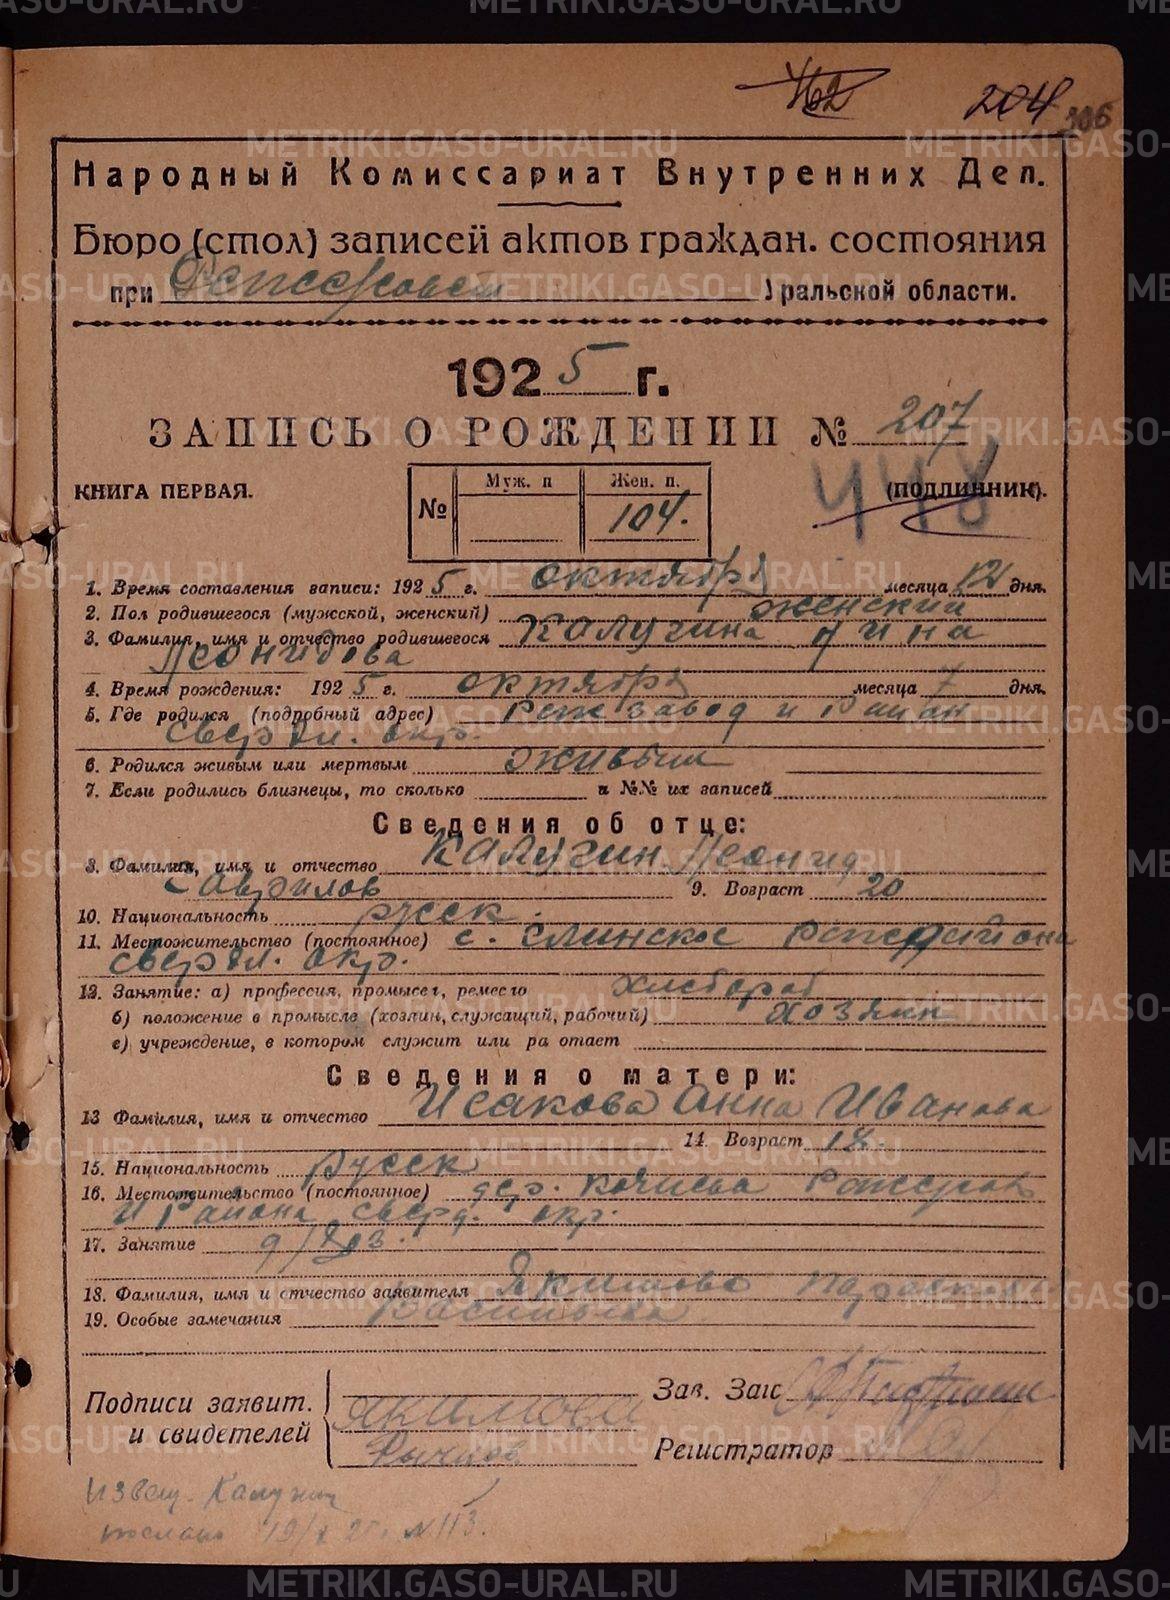 162
204
206
Народный Комиссариат Внутренних Дел.
Бюро (стол) записей актов граждан. состояния
при Режсовет Уральской области.
1925 г.
ЗАПИСЬ О РОЖДЕНИИ № 207
448
КНИГА ПЕРВАЯ. (ПОДЛИННИК).
№ Муж. п Жен. п.
104.
1. Время составления записи: 1925 г. октября месяца 12 дня.
2. Пол родившегося (мужской, женский) женский
3. Фамилия, имя и отчество родившегося Калугина Нина
Леонидова
4. Время рождения: 1925 г. октября месяца 7 дня.
5. Где родился (подробный адрес) Реж завод и Район
Свердл. окр.
6. Родился живым или мертвым живым
7. Если родились близнецы, то сколько и №№ их записей
Сведения об отце:
8. Фамилия, имя и отчество Калугин Леонид
Гаврилов 9. Возраст 20
10. Национальность русск.
11. Местожительство (постоянное) с. Глинское Режрайона
Свердл. окр.
12. Занятие: а) профессия, промысел, ремесло хлебороб
б) положение в промысле (хозяин, служащий, рабочий) хозяин
в) учреждение, в котором служит или ра отает
Сведения о матери:
13 Фамилия, имя и отчество Исакова Анна Иванова
14. Возраст 18.
15. Национальность русск
16. Местожительство (постоянное) дер. Кочнева Режевск
и Района Сверд. окр.
17. Занятие д/хоз.
18. Фамилия, имя и отчество заявителя Якимова Парасковья
19. Особые замечания Васильева
Подписи заявит. и свидетелей
Якимова
Рычков
Зав. Загс
Регистратор
Извещ. Калугин
послано 19/X 25 г. № 113.
METRIKI.GASO-URAL.RU